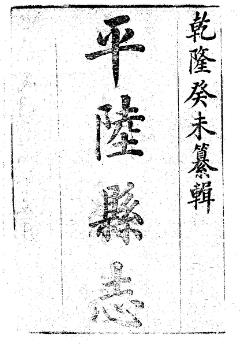 乾隆癸未纂輯
平陸縣志